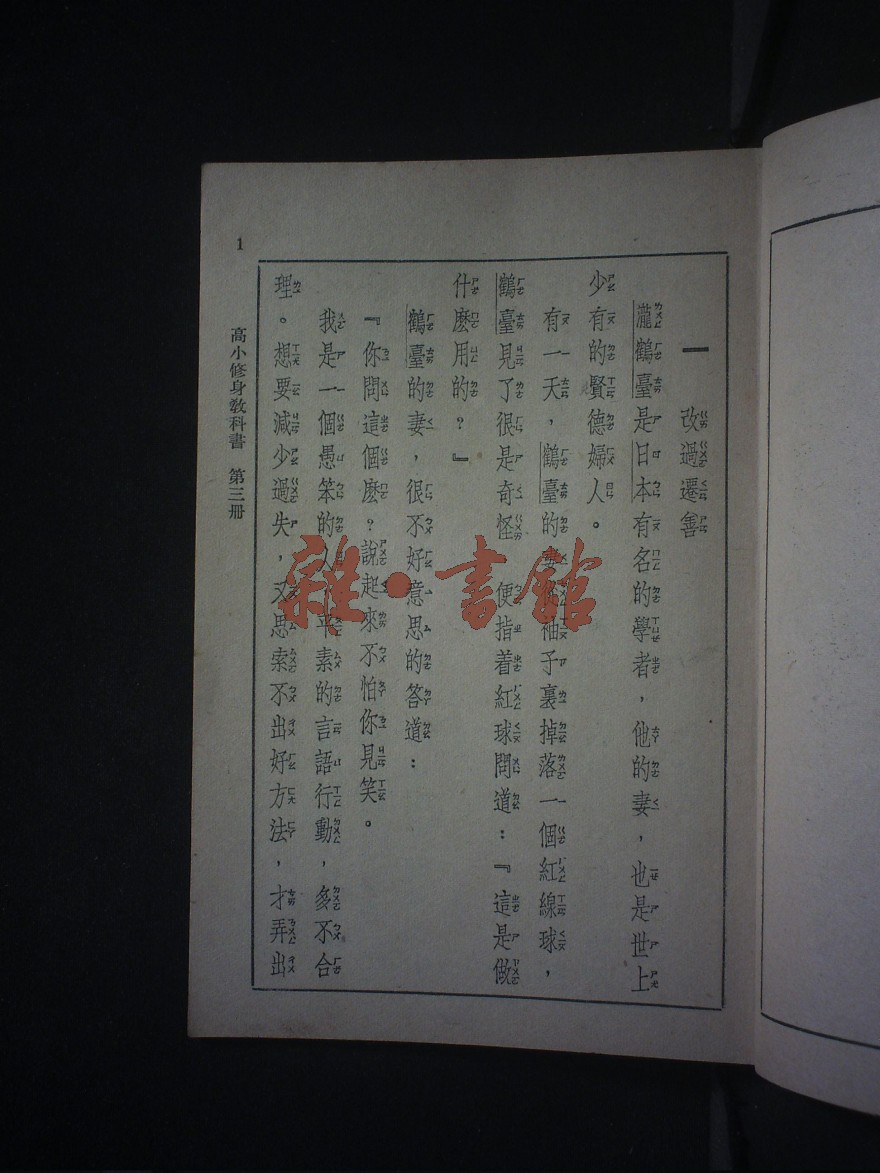 一 改過遷善
瀧鶴臺是日本有名的學者，他的妻，也是世上
少有的賢德婦人。
有一天，鶴臺的妻從袖子裏掉落一個紅線球，
鶴臺見了很是奇怪 便指着紅球問道：『這是做
什麼用的？』
鶴臺的妻，很不好意思的答道：
『你問這個麼？說起來不怕你見笑。
我是一個愚笨的人 平素的言語行動，多不合
理。想要減少過失，又思索不出好方法，才弄出
高小修身教科書 第三冊
1
雜·書館